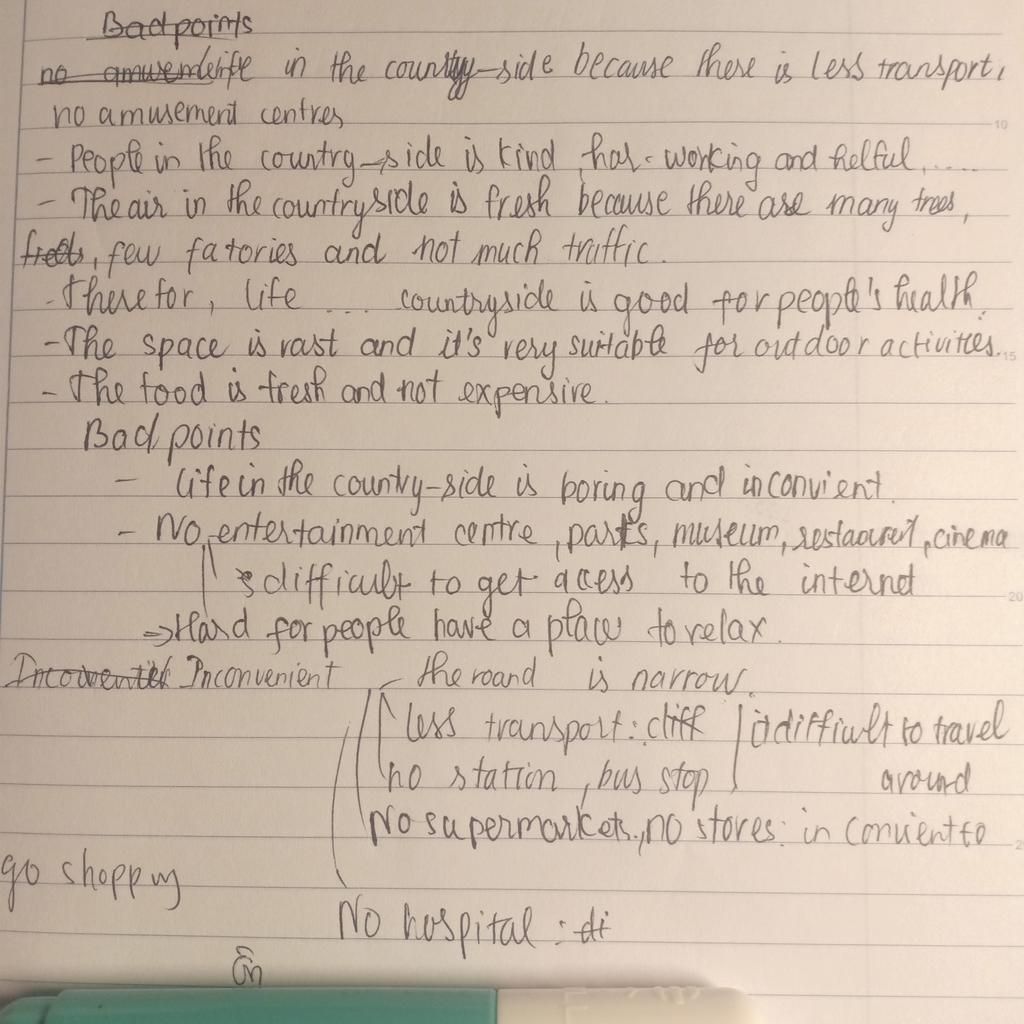 Bad points
no amusem life in the country-side because there is less transport,
no amusement centres
- People in the country-side is kind, har-working and helful.....
- The air in the countryside is fresh because there are many trees,
trees, few fatories and not much traffic.
- Therefor, life ... countryside is good for people's health.
- The space is vast and it's very suitable for outdoor activities.
- The food is fresh and not expensive.
Bad points
- Life in the country-side is boring and inconvient.
- No entertainment centre, parks, museum, restaurent, cinema
difficult to get acess to the internet
=> Hard for people have a place to relax.
Inconvenient - the roand is narrow.
less transport: diff is difficult to travel
no station, bus stop around
No supermarkets, no stores: in convient to
go shopping
No hospital: di